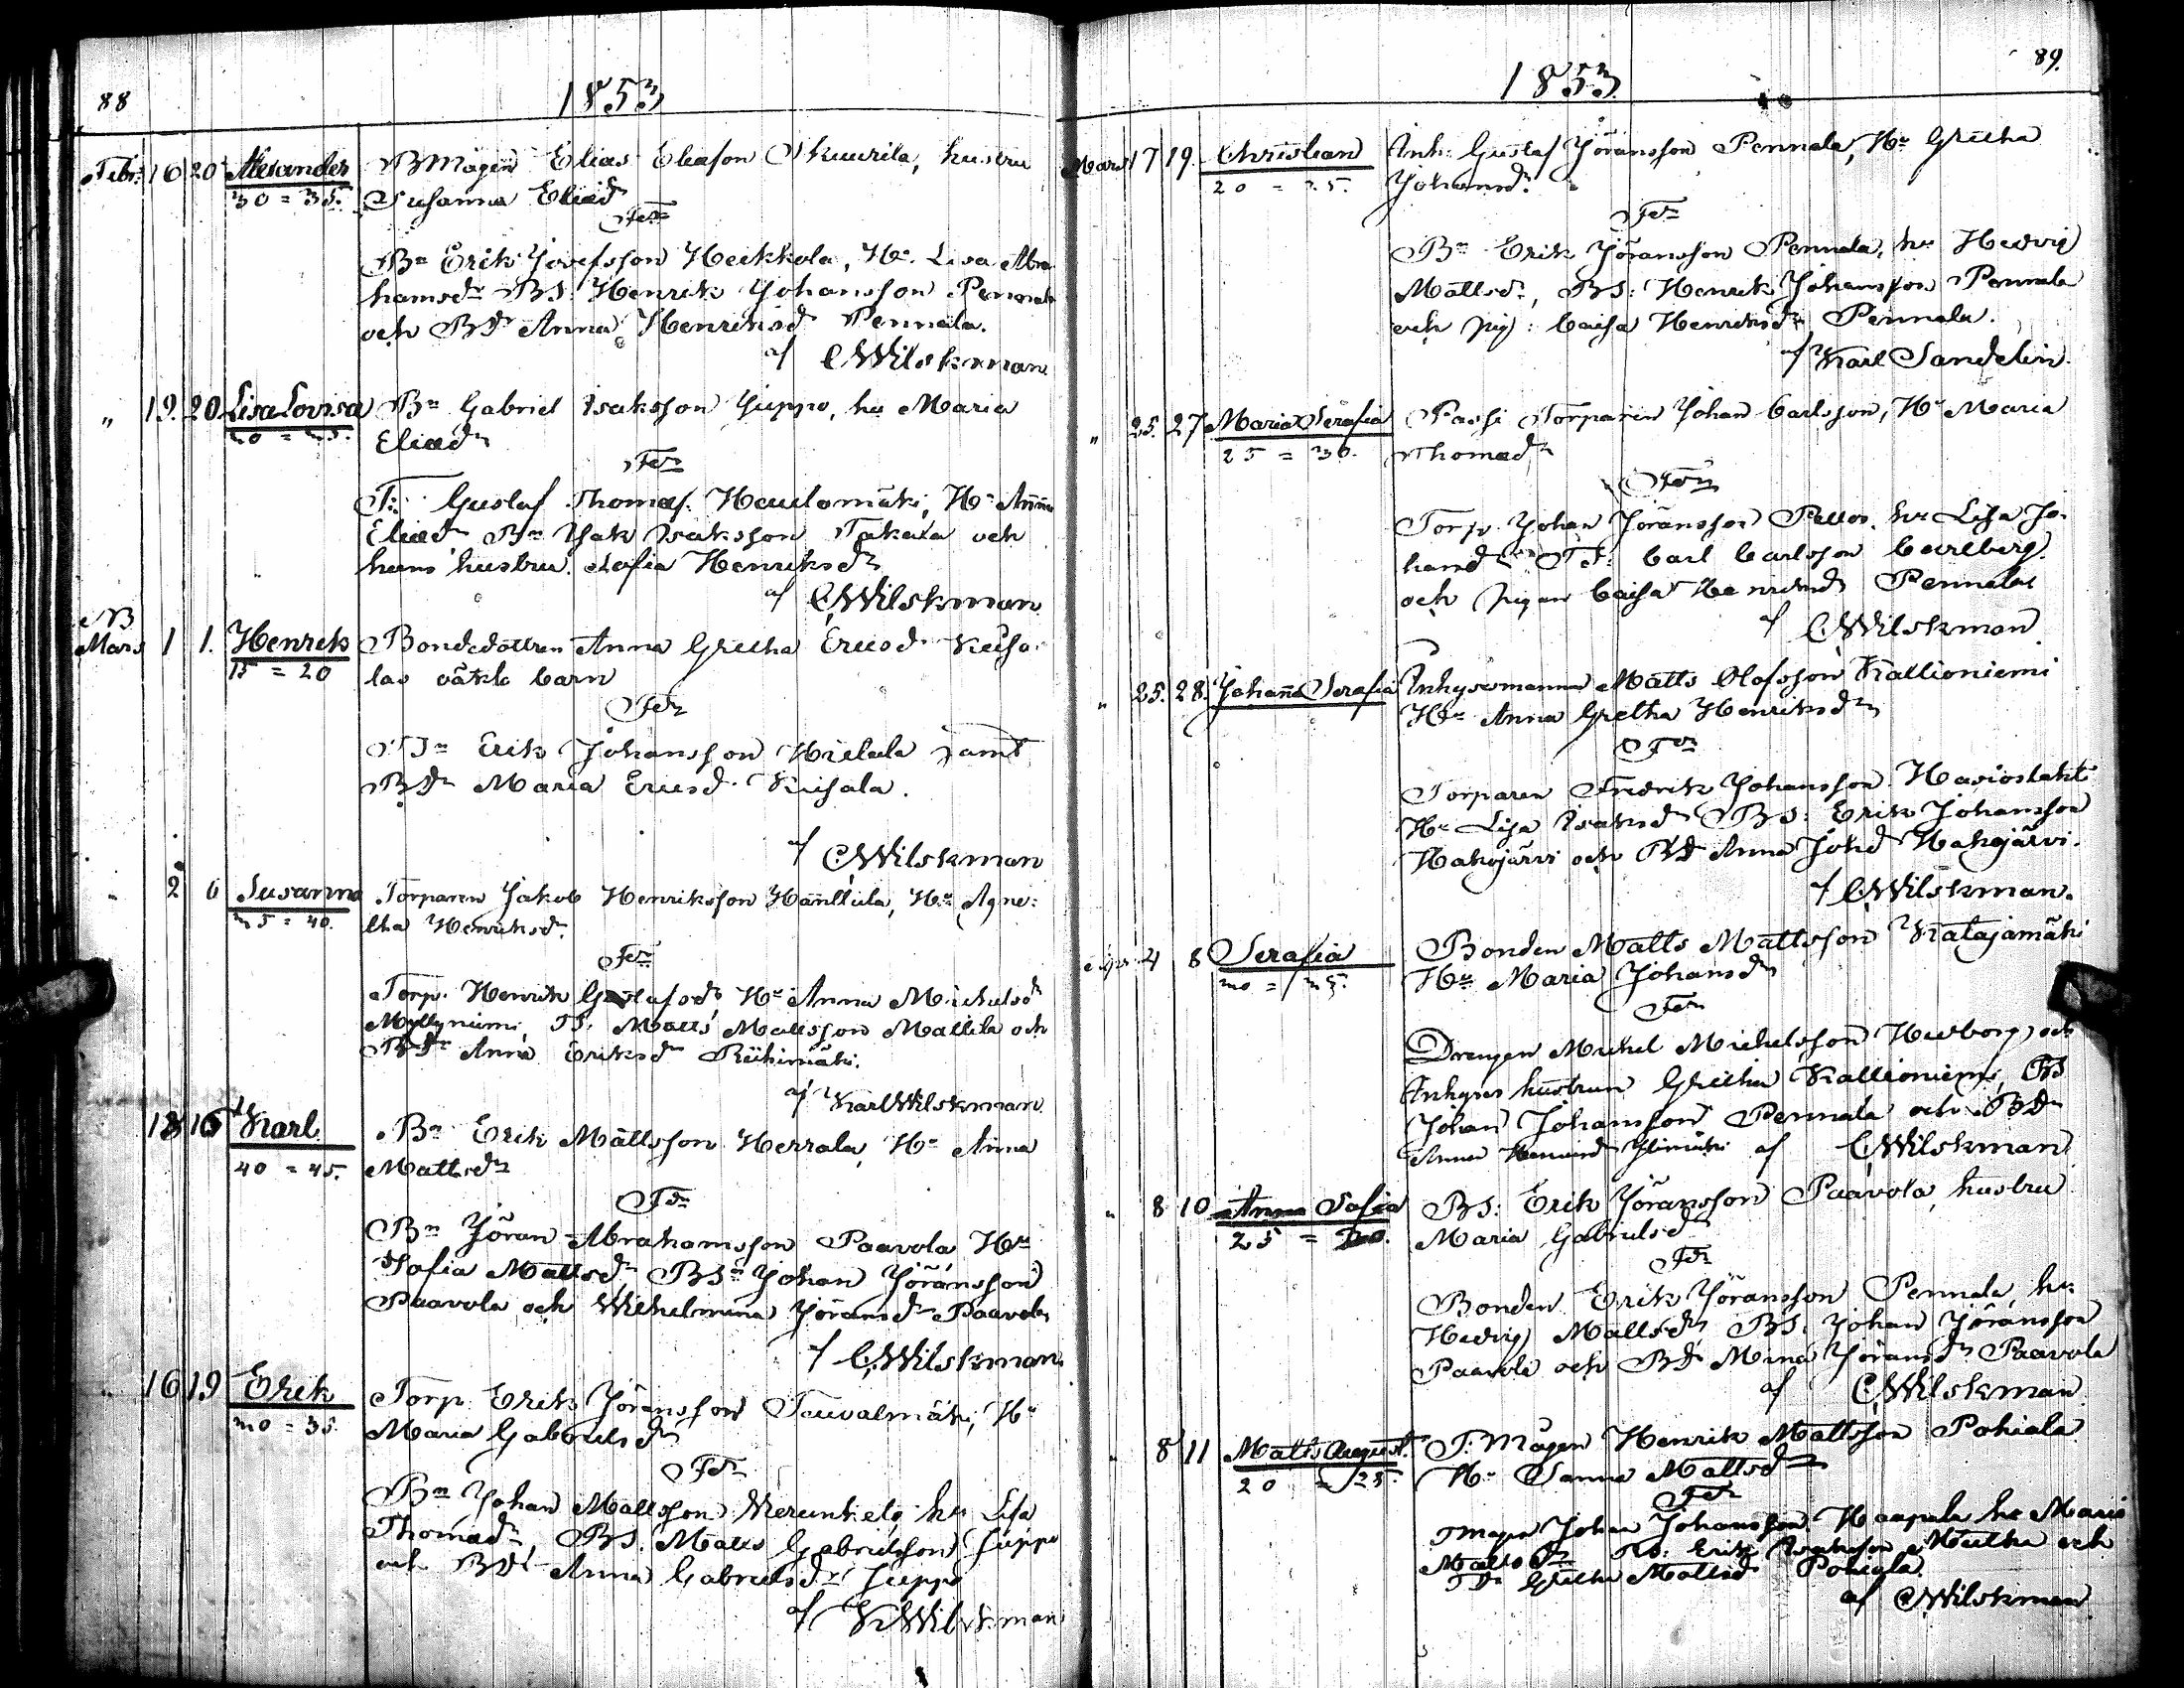 88
1853
Febr: 16 20 Alexander BMågen Elias Eliasson Skuurila, hustru
30 = 35. Susanna Eliæd
Fdr
Bn Erik Josefsson Heikkola, Hu Lisa Abra
hamsdr BS: Henrik Johansson Pennala
och BDr Anna Henriksd Pennala.
af CWilskman
" 19. 20 Lisa Lovisa Bn Gabriel Isaksson Juppo, hu Maria
Eliædr
Fdr
T: Gustaf Thomas. Hautomäki, Hu Anna
Eliædr Bn Isak Isaksson Takala och
hans hustru Sofia Henriksdr
af CWilskman
NB
Mars 1 1. Henrik Bondedottren Anna Gretha Ericsd Keisa
15 = 20 las oäkta barn
Fdr
Erik Johansson Hietala samt
BDr Maria Ericsd Keisala.
af CWilskman
" 2 6 Susanna Torparen Jakob Henriksson Hanttula, Hu Agne:
35 = 40. tha Henriksdr
Fdr
Torp. Henrik Gustafsd, Hu Anna Michelsdr
Myllyniemi, TS. Matts Mattsson Mattila och
BDr Anna Eriksdr Riihimäki.
af Karl Wilskman
13 16 Karl Bn Erik Mattsson Herrala, Hu Anna
40 = 45. Mattsdr
Fdr
Bn Jöran Abrahamsson Paavola Hu
Sofia Mattsdr BSn Johan Jöransson
Paavola och Wilhelmina Jöransdr Paavola
af CWilskman
" 16 19 Erik Torp. Erik Jöransson Touvalmäki, Hu
30 = 35. Maria Gabrielsdr
Fdr
Bn Johan Mattsson hu Lisa
Thomædr, BS. Matts Gabrielsson Juppo
och BDr Anna Gabrielsdr Juppo
af KWilskman
89.
1853
Mars 17 19. Christian Inh: Gustaf Jöransson Pennala, Hu Gretha
20 = 25. Johansdr
Fdr
Bn Erik Jöransson Pennala, hu Hedvig
Mattsdr, BS: Henrik Johansson Pennala
och pig: Caisa Henriksdr Pennala.
af Karl Sandelin.
" 25. 27 Maria Serafia Passi Torparen Johan Carlsson, Hu Maria
25 = 30. Thomædr
Fdr
Torp. Johan Jöransson Pellos, hu Lisa Jo
hansdr TS: Carl Carlsson Carlberg
och pigan Caisa Henriksdr Pennala
af CWilskman
" 25. 28. Johanna Serafia Inhysesmannen Matts Olofsson Kallioniemi
Hu Anna Gretha Henriksdr
Fdr
Torparen Fredrik Johansson
Hu Lisa Isaksdr BS: Erik Johansson
Hakojärvi och BD Anna Johd Hakojärvi.
af CWilskman.
Apr. 4 8 Serafia Bonden Matts Mattsson Katajamäki
Hu Maria Johansdr
Fdr
Drengen Mickel Michelsson och
Inhyses hustrun Gretha Kallioniemi, BS
Johan Johansson Pennala och BDr
Anna af CWilskman
" 8 10 Anna Sofia BS: Erik Jöransson Paavola, hustru
25 = 30. Maria Gabrielsd
Fdr
Bonden Erik Jöransson Pennala, hu
Hedvig Mattsdr BS. Johan Jöransson
Paavola och BDr Mina Jöransdr Paavola
af CWilskman
" 8 11 Matts August. T: Mågen Henrik Mattsson Pohiala
20 = 25. Hu Sanna Mattsdr
Fdr
TMågen Johan Johansson Haapala hu Maria
Mattsdr Erik Isaksson och
TDr Gretha Mattsd Pohiala
af CWilskman